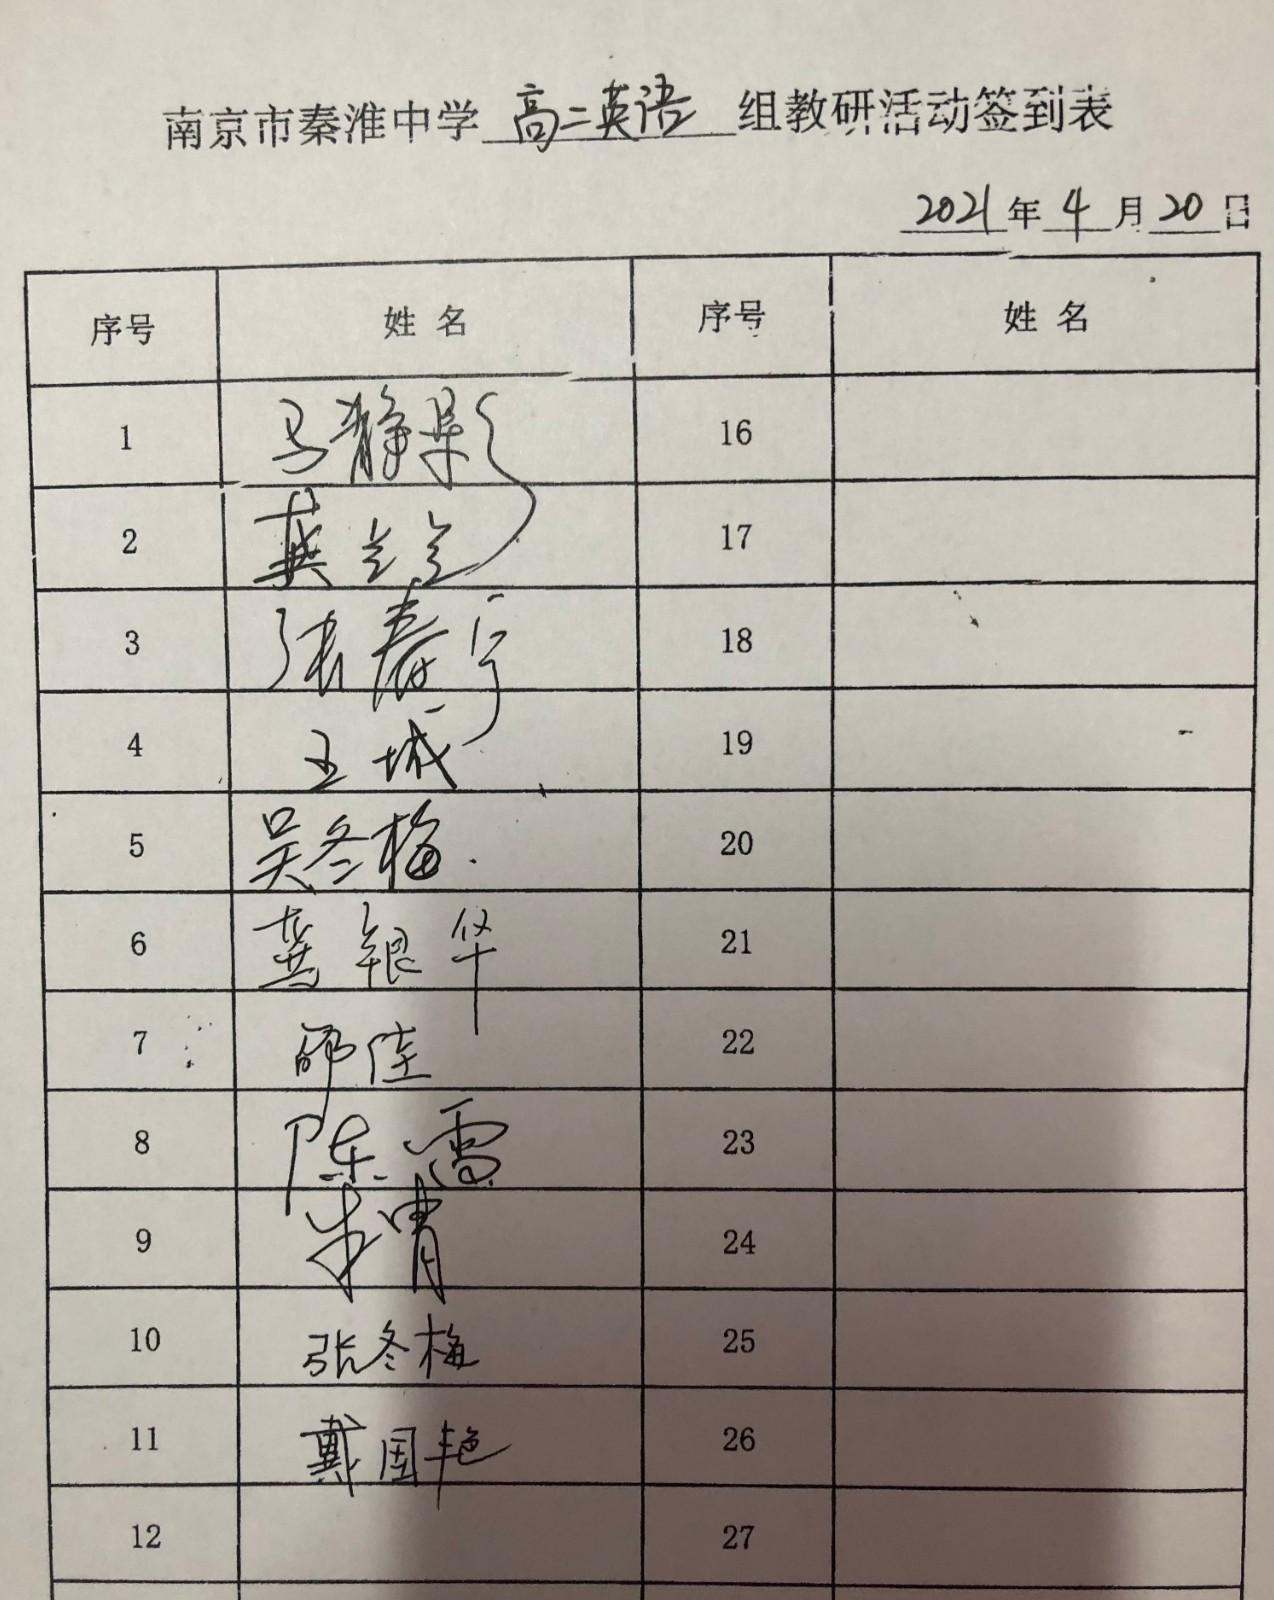 南京市秦淮中学 高二英语 组教研活动签到表
2021 年 4 月 20 日
序号 姓名 序号 姓名
1 马静影 16
2 17
3 张春宁 18
4 王城 19
5 吴冬梅 20
6 龚银华 21
7 邵佳 22
8 陈雷 23
9 朱胄 24
10 张冬梅 25
11 戴国艳 26
12 27